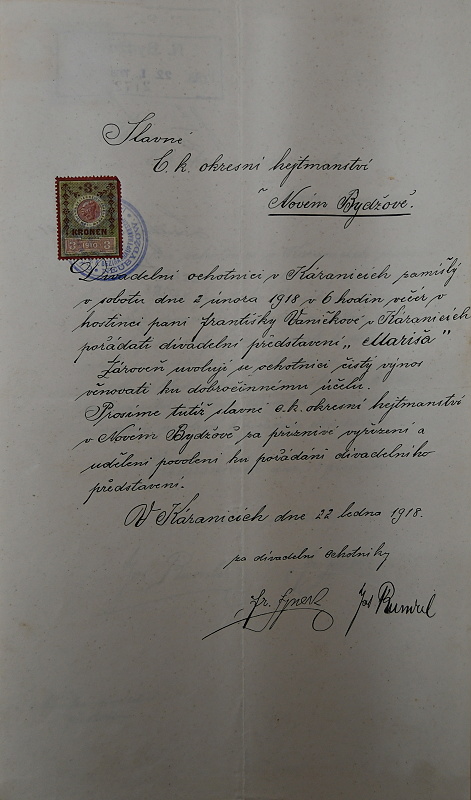 Slavné
C. k. okresní hejtmanství
v Novém Bydžově.
3
KRONEN
3 1910 3
Divadelní ochotníci v Káranicích zamýšlí
v sobotu dne 2 února 1918 v 6 hodin večer v
hostinci paní Františky Vaníčkové v Káranicích
pořádati divadelní představení „Mariša"
Zároveň uvolují se ochotníci čistý výnos
věnovati ku dobročinnému účelu.
Prosíme tutíž slavné c. k. okresní hejtmanství
v Novém Bydžově za příznivé vyřízení a
udělení povolení ku pořádání divadelního
představení.
V Káranicích dne 22 ledna 1918.
za divadelní ochotníky
Fr.